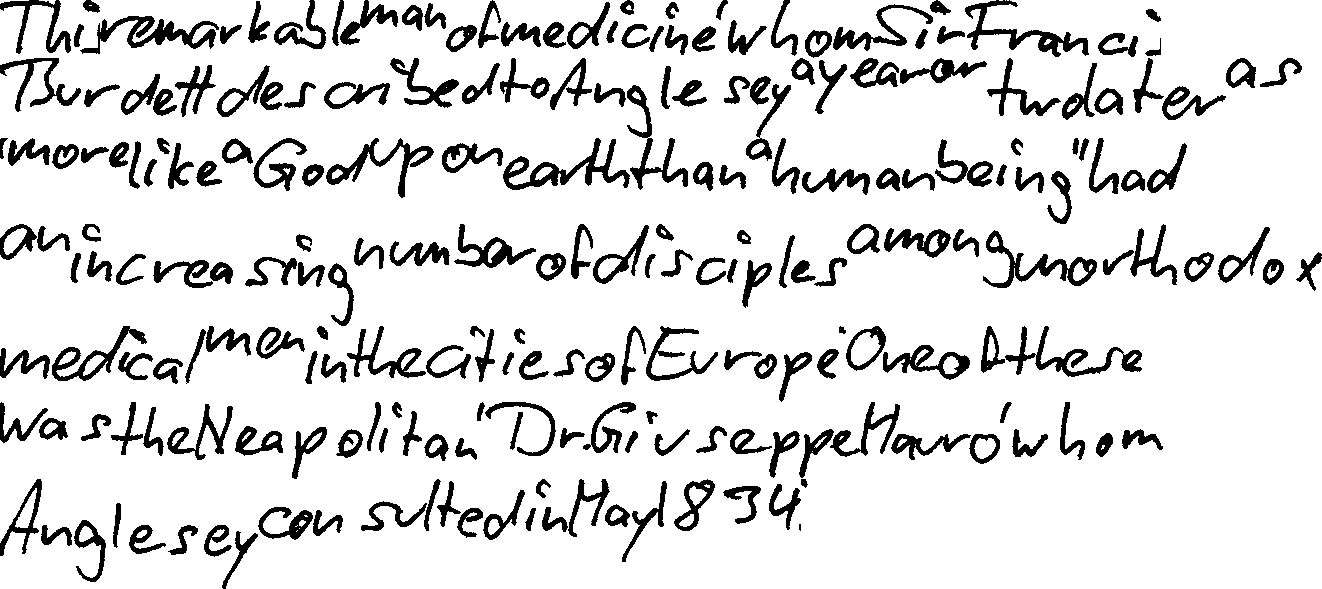 This remarkable man of medicine, whom Sir Francis
Burdett described to Anglesey a year or two later as
"more like a God upon earth than a human being", had
an increasing number of disciples among unorthodox
medical men in the cities of Europe. One of these
was the Neapolitan, Dr. Giuseppe Mauro, whom
Anglesey consulted in May 1834.